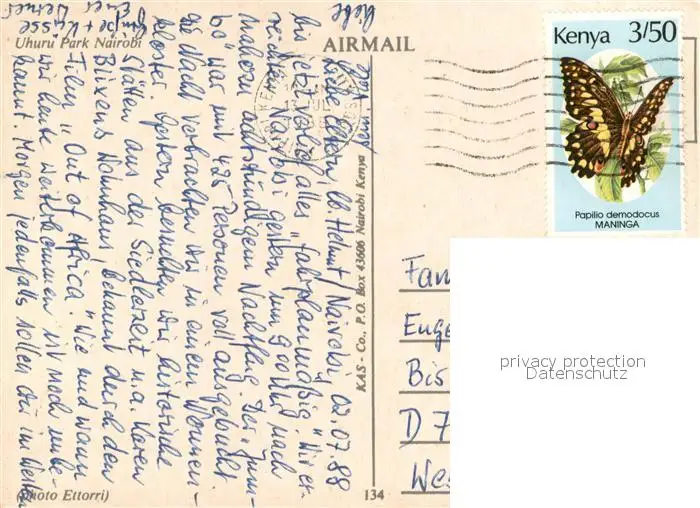 Uhuru Park Nairobi
AIRMAIL
Kenya 3/50
Papilio demodocus
MANINGA
Liebe Eltern, lb. Helmut, Nairobi 02.07.88
bis jetzt verlief alles "fahrplanmäßig". Wir er-
reichten Nairobi gestern um 9 00 Uhr nach
achtstündigem Nachtflug. Der "Jum-
bo" war mit 425 Personen voll ausgebucht.
Die Nacht verbrachten wir in einem Nonnen-
kloster. Gestern besuchten wir historische
Stätten aus der Siedlerzeit u.a. Karen
Blixens Wohnhaus, bekannt durch den
Film "Out of Africa". Wie und wann
wir heute weiterkommen ist noch unbe-
kannt. Morgen jedenfalls sollen wir im Westen
liebe
Grüße + Küsse
Euer Werner
KAS - Co., P.O. Box 43606 Nairobi Kenya
Fam
Euge
Bis
D 7
Wes
privacy protection
Datenschutz
(Photo Ettorri)
134